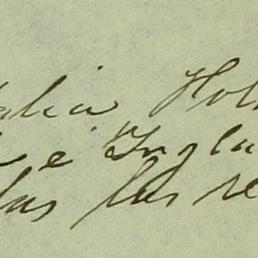 talia Hol
e Ingla
las las re